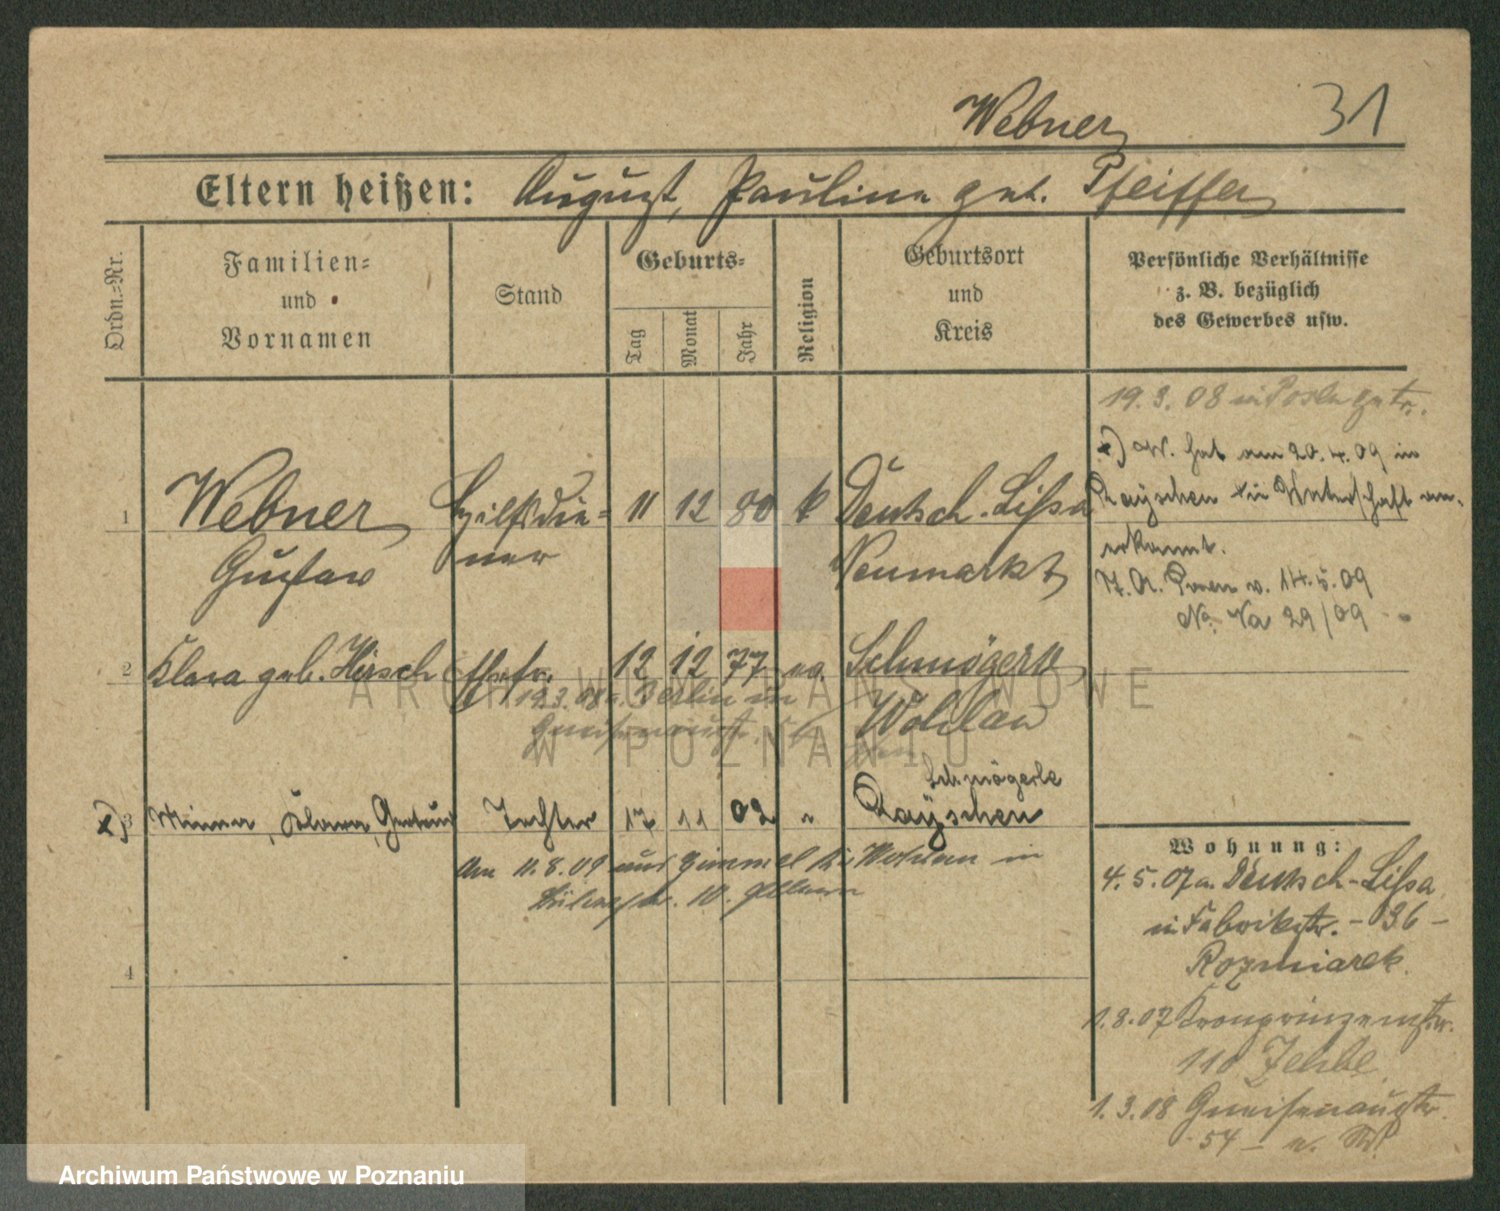 Webner 31
Eltern heißen: August, Pauline geb. Pfeiffer
Ordn.-Nr.
Familien-
und
Vornamen
Stand
Geburts-
Tag
Monat
Jahr
Religion
Geburtsort
und
Kreis
Persönliche Verhältnisse
z. B. bezüglich
des Gewerbes usw.
19. 3. 08 in Posen
x) W. hat am 20. 4. 09 in
Rayschen die Vaterschaft an-
erkannt.
St. A. Posen v. 14. 5. 09
No. Va 29/09
1 Webner Hilfsdie- 11 12 80 k Deutsch-Lissa
Gustav ner Neumarkt
2 Klara geb. Hirsch Ehefr. 12 12 77 ev. Schmögerle
19.3.08 a. Berlin in Wohlau
Gneisenaustr.
Schmögerle
x) 3 Minna, Klara, Gertrud Tochter 17 11 02 " Rayschen
Am 11.8.09 aus Wohlau in
4
Wohnung:
4. 5. 07 a. Deutsch-Lissa
in Fabrikstr. - 36 -
Rozmiarek
1.8.07 Kronprinzenstr.
110 Zehbe
1. 3. 08 Gneisenaustr.
54
ARCHIWUM PAŃSTWOWE
W POZNANIU
Archiwum Państwowe w Poznaniu